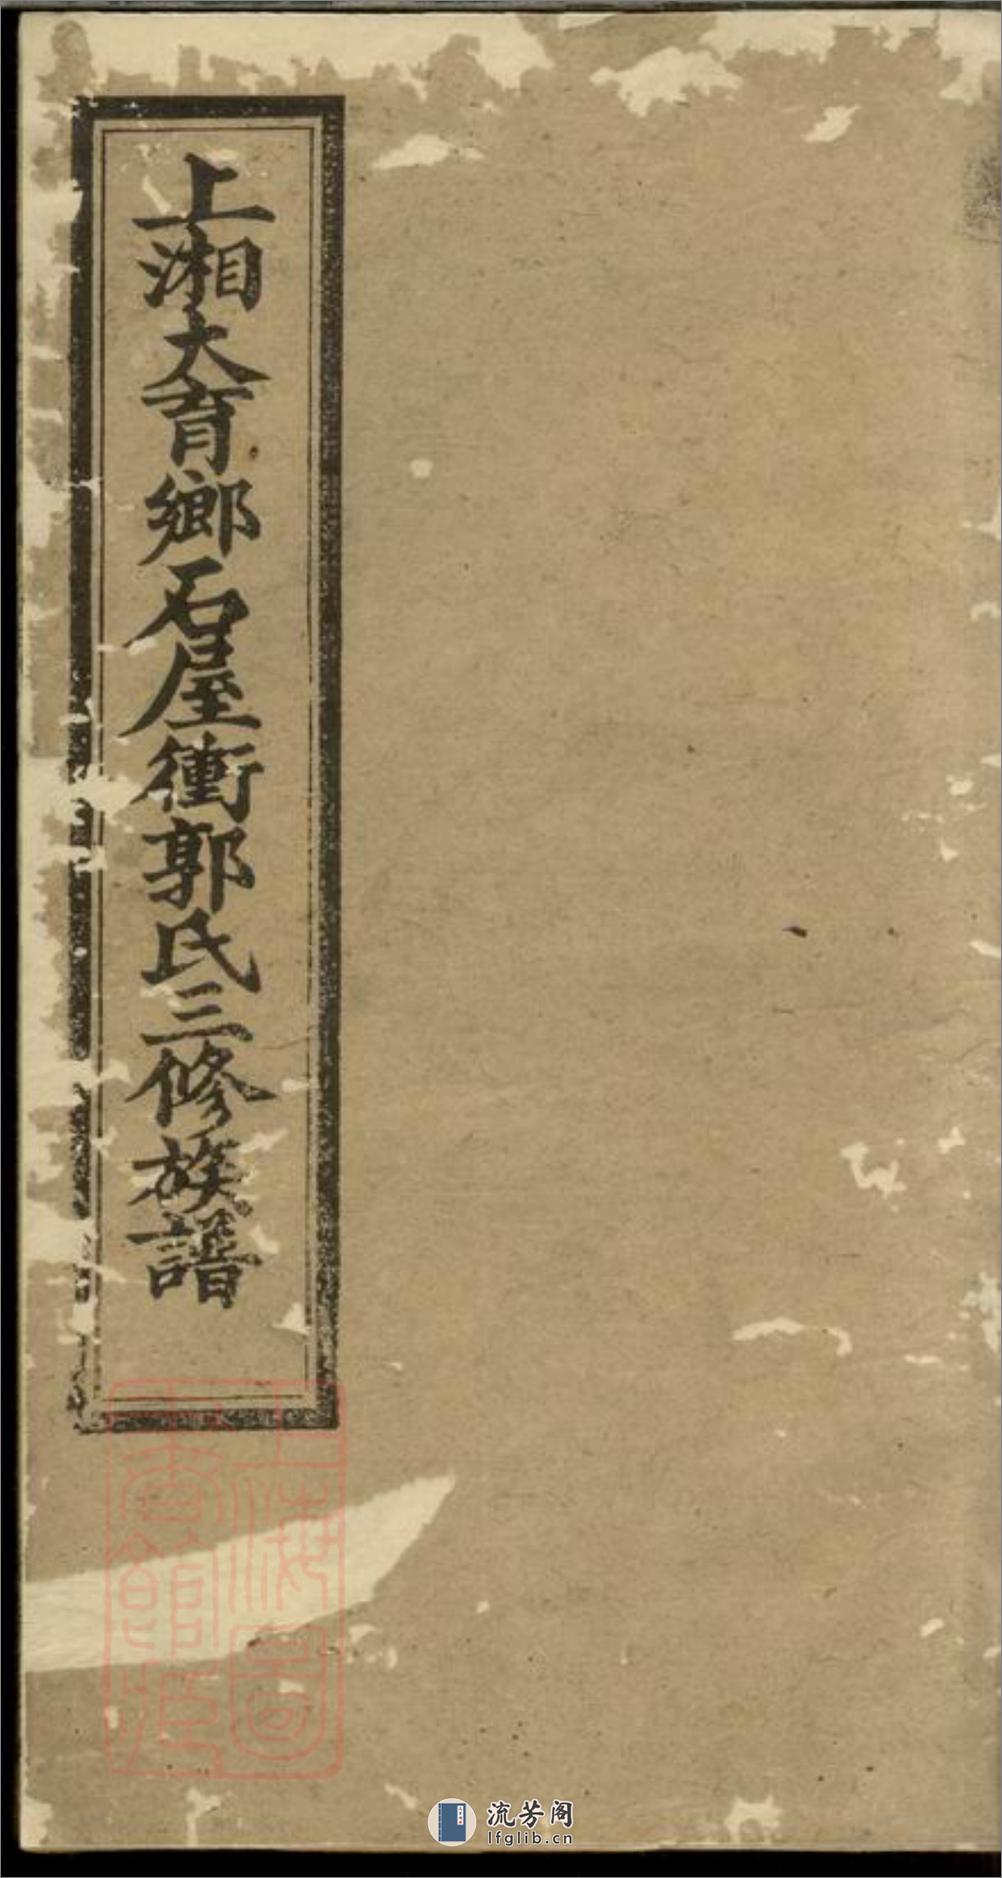 上湘大育鄉石屋衝郭氏三修族譜
上海圖
書館藏
流芳阁
lfglib.cn